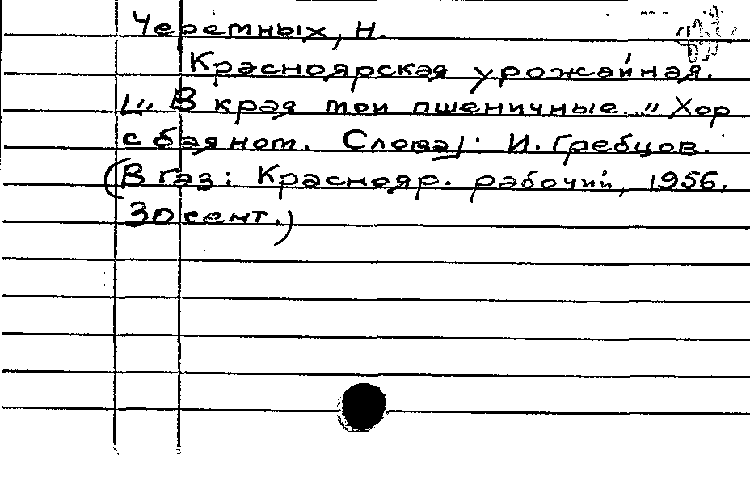 Черемных, Н.
Красноярская урожайная.
[„ В края твои пшеничные „ Хор
с баяном. Слова]: И. Гребцов.
(В газ: Краснояр. рабочий, 1956.
30 сент.)